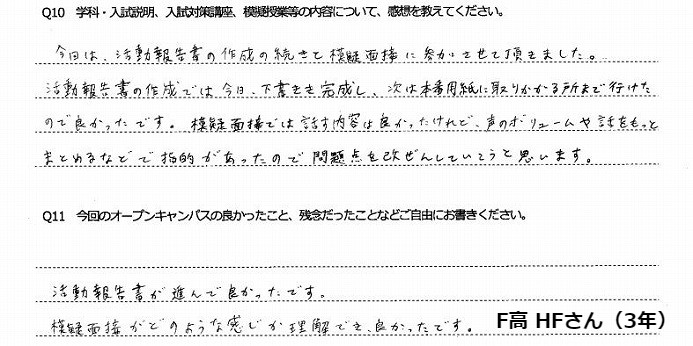 Q10　学科・入試説明、入試対策講座、模擬授業等の内容について、感想を教えてください。
今日は、活動報告書の作成の続きと模擬面接に参加させて頂きました。
活動報告書の作成では今日、下書きを完成し、次は本番用紙に取りかかる所まで行けた
ので良かったです。模擬面接では話す内容は良かったけれど、声のボリュームや話をもっと
まとめるなどで指摘があったので問題点を改ぜんしていこうと思います。
Q11　今回のオープンキャンパスの良かったこと、残念だったことなどご自由にお書きください。
活動報告書が進んで良かったです。
模擬面接がどのような感じか理解でき、良かったです。
F高 HFさん（3年）